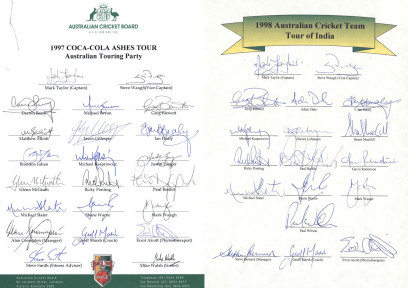 AUSTRALIAN CRICKET BOARD
1997 COCA-COLA ASHES TOUR
Australian Touring Party
Mark Taylor (Captain) Steve Waugh (Vice-Captain)
Michael Bevan Greg Blewett
Matthew Elliott Jason Gillespie Ian Healy
Brendon Julian Michael Kasprowicz Justin Langer
Glenn McGrath Ricky Ponting Paul Reiffel
Michael Slater Shane Warne Mark Waugh
Alan Crompton (Manager) Geoff Marsh (Coach) Errol Alcott (Physiotherapist)
Steve Smith (Fitness Advisor) Mike Walsh (Scorer)
Australian Cricket Board
1998 Australian Cricket Team
Tour of India
Mark Taylor (Captain) Steve Waugh (Vice-Captain)
Adam Dale Ian Healy
Michael Kasprowicz Darren Lehmann Stuart MacGill
Ricky Ponting Paul Reiffel Gavin Robertson
Michael Slater Shane Warne Mark Waugh
Paul Wilson
Steve Bernard (Manager) Geoff Marsh (Coach) Errol Alcott (Physiotherapist)